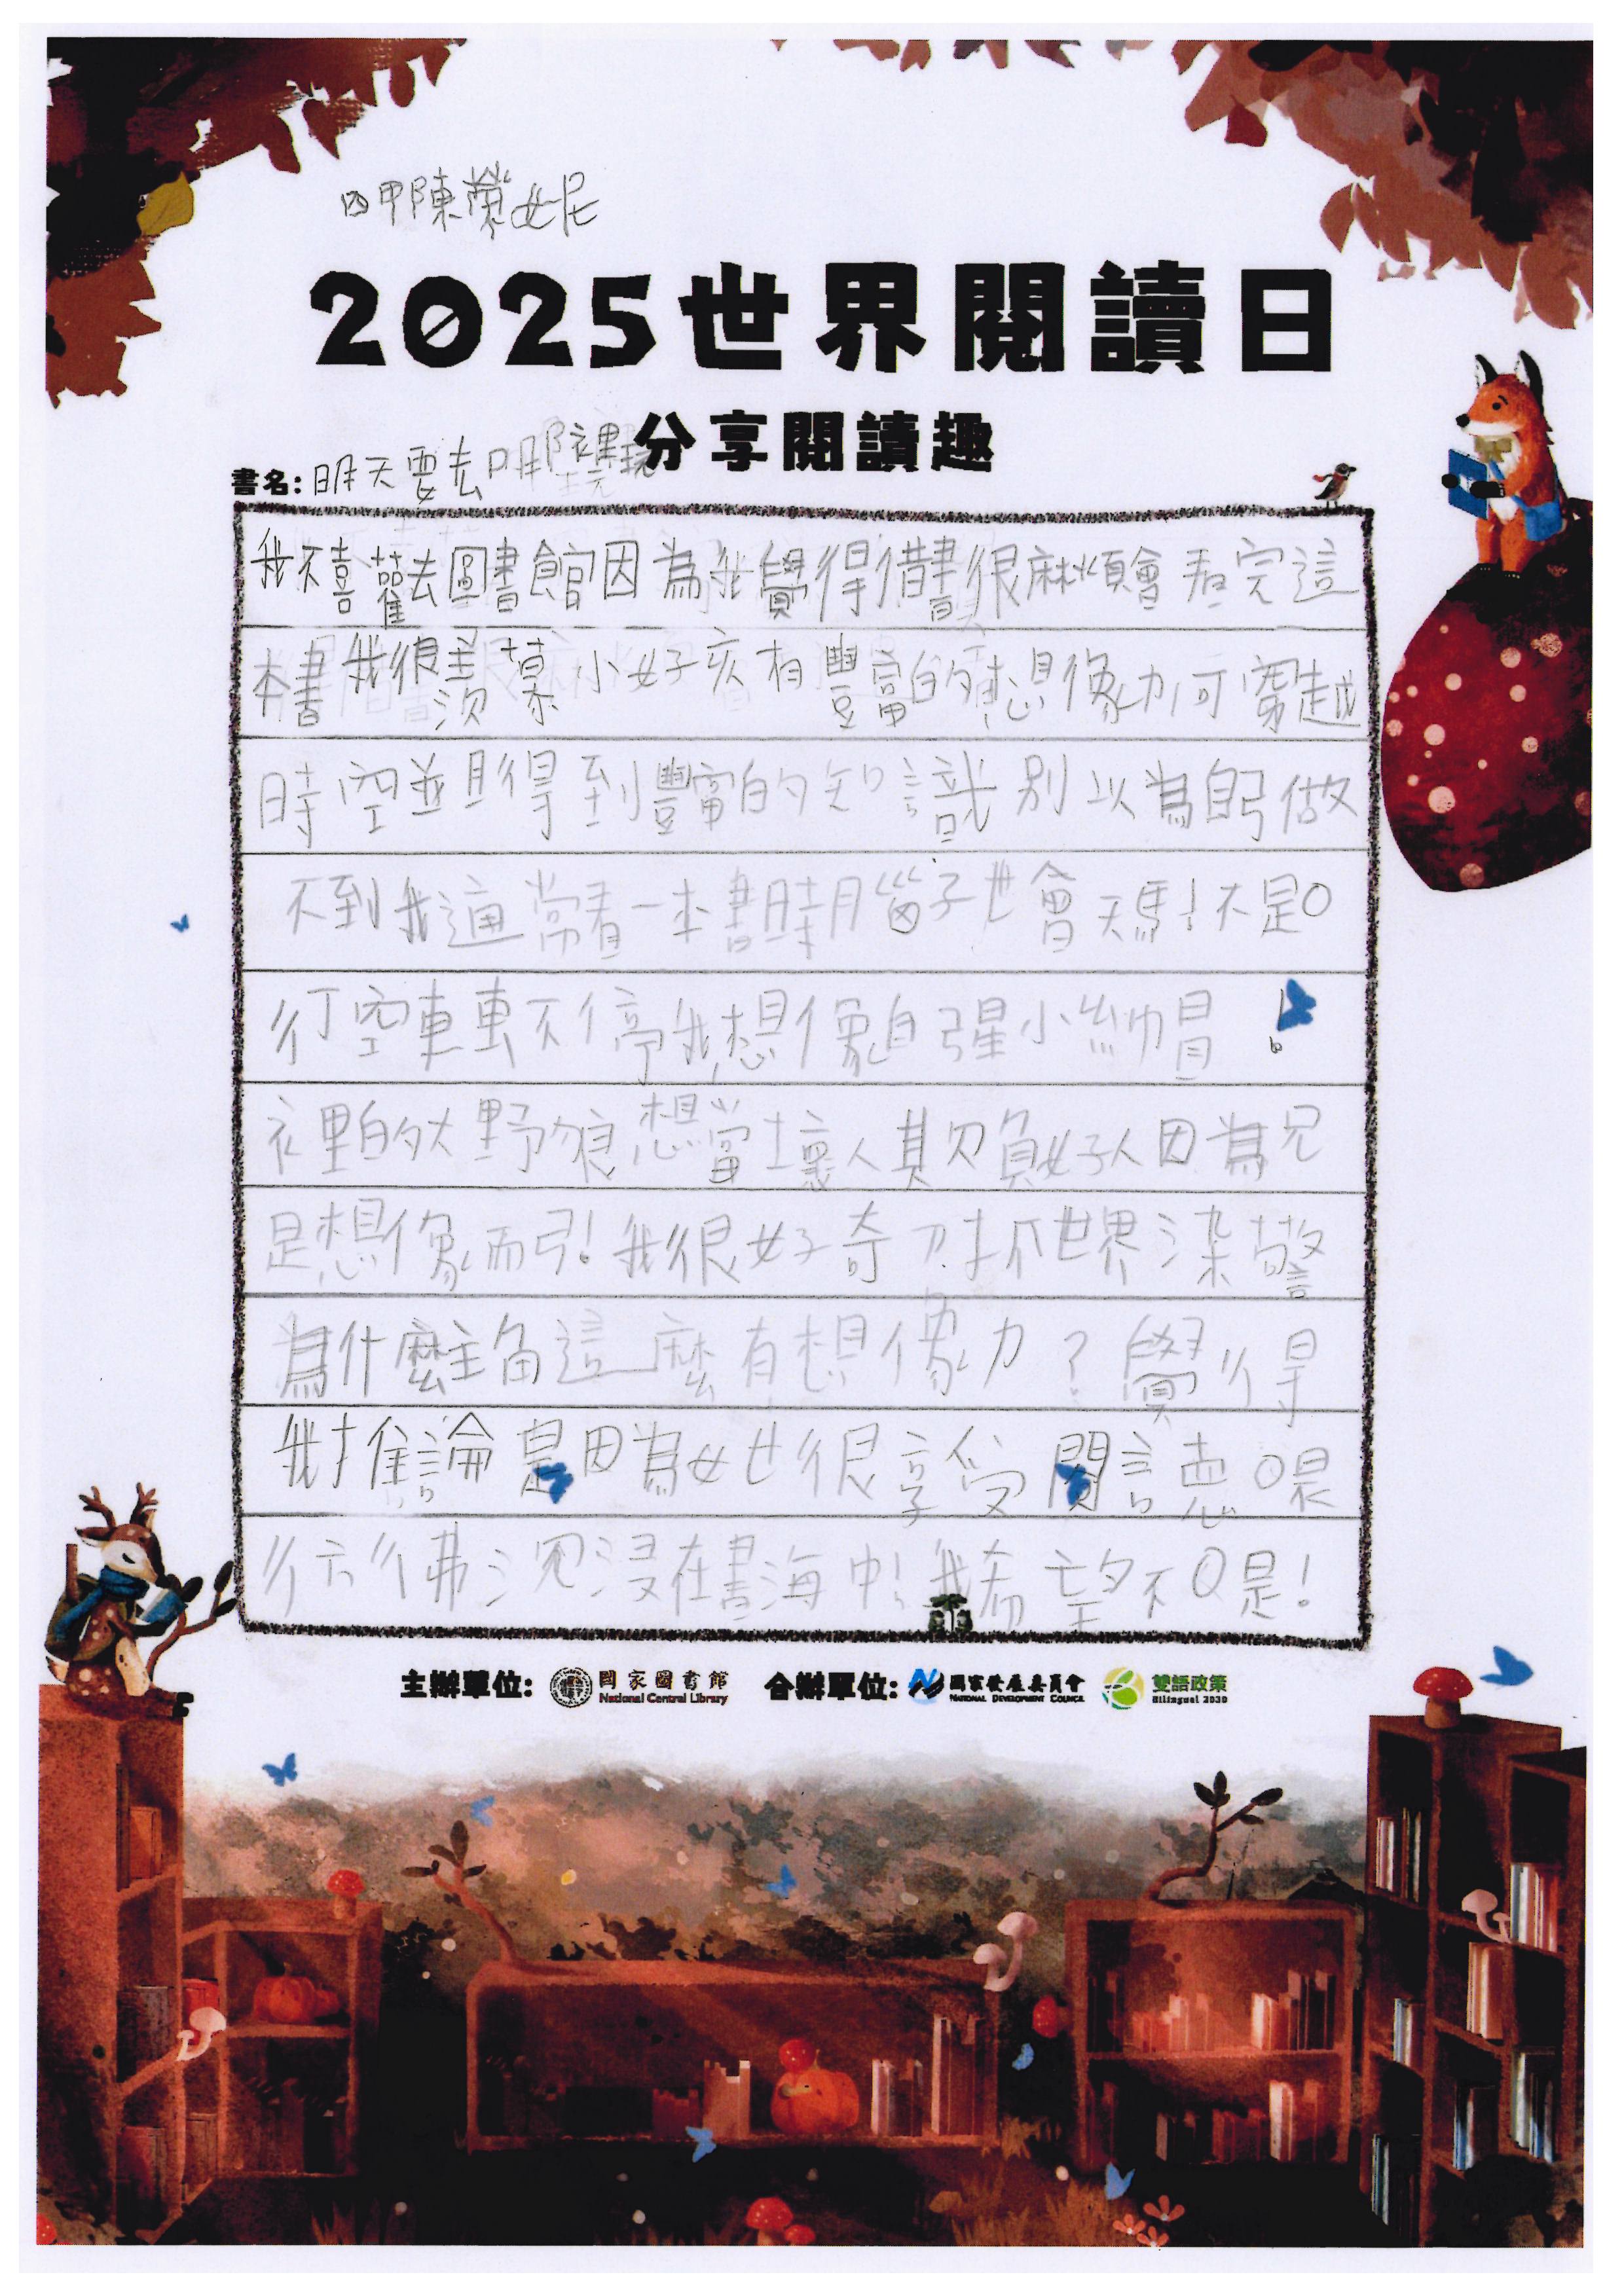 四甲陳縈妮
2025世界閱讀日
分享閱讀趣
書名:明天要去哪裡玩
我不喜歡去圖書館因為我覺得借書很麻煩會看完這
本書我很羨慕小女孩有豐富的想像力可穿越
時空並且得到豐富的知識別以為自己做
不到我通常看一本書時腦子也會天馬!不是。
行空車車不停我想像自己是小紅帽!
裡的大野狼想當壞人欺負好人因為只
是想像而已!我很好奇
為什麼主角這麼有想像力?覺得
我推論是因為她很享受閱讀。是
彷彿沉浸在書海中!我希望不。是!
主辦單位: 國家圖書館 合辦單位: 國家發展委員會 雙語政策
National Central Library NATIONAL DEVELOPMENT COUNCIL Bilingual 2030